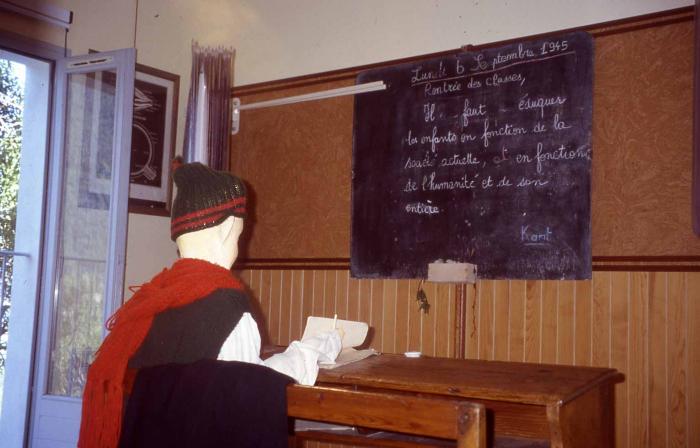 Lundi 6 Septembre 1945
Rentrée des Classes,
Il faut éduquer
les enfants en fonction de la
société actuelle, et en fonction
de l'humanité et de son
entière.
Kant